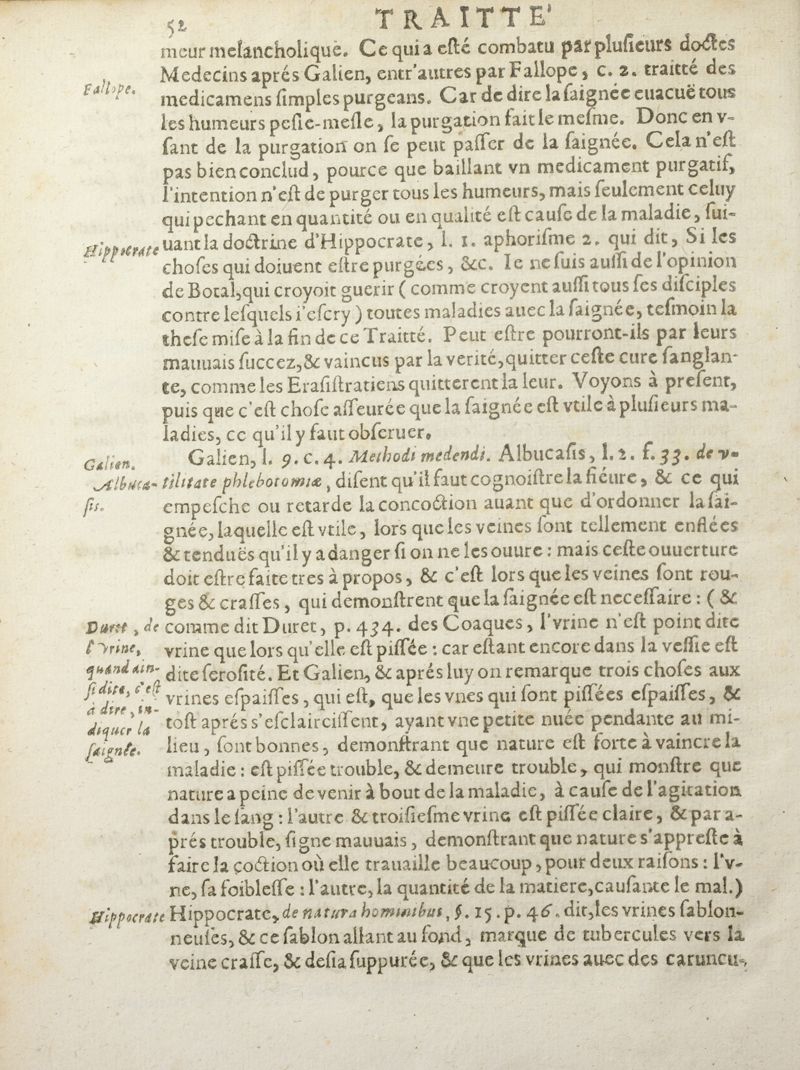 52 TRAITTE'
meur melancholique. Ce qui a esté combatu par plusieurs doctes
Medecins aprés Galien, entr'autres par Fallope, c. 2. traitté des
Fallope.
medicamens simples purgeans. Car de dire la saignée euacuë tous
les humeurs pesle-mesle, la purgation fait le mesme. Donc en v-
sant de la purgation on se peut passer de la saignée. Cela n'est
pas bien conclud, pource que baillant vn medicament purgatif,
l'intention n'est de purger tous les humeurs, mais seulement celuy
qui pechant en quantité ou en qualité est cause de la maladie, sui-
Hippocrate uant la doctrine d'Hippocrate, l. 1. aphorisme 2. qui dit, Si les
choses qui doiuent estre purgées, &c. Ie ne suis aussi de l'opinion
de Botal, qui croyoit guerir (comme croyent aussi tous ses disciples
contre lesquels i'escry) toutes maladies auec la saignée, tesmoin la
these mise à la fin de ce Traitté. Peut estre pourront-ils par leurs
mauuais succez, & vaincus par la verité, quitter ceste cure sanglan-
te, comme les Erasistratiens quitterent la leur. Voyons à present,
puis que c'est chose asseurée que la saignée est vtile à plusieurs ma-
ladies, ce qu'il y faut obseruer.
Galien. Galien, l. 9. c. 4. Methodi medendi. Albucasis, l. 2. s. 33. de v-
Albuca- tilitate phlebotomiæ, disent qu'il faut cognoistre la fiéure, & ce qui
sis. empesche ou retarde la concoction auant que d'ordonner la sai-
gnée, laquelle est vtile, lors que les veines sont tellement enflées
& tenduës qu'il y a danger si on ne les ouure : mais ceste ouuerture
doit estre faite tres à propos, & c'est lors que les veines sont rou-
ges & crasses, qui demonstrent que la saignée est necessaire : (&
Duret, de comme dit Duret, p. 434. des Coaques, l'vrine n'est point dite
l'vrine, vrine que lors qu'elle est pissée : car estant encore dans la vessie est
quand ain- dite serosité. Et Galien, & aprés luy on remarque trois choses aux
si dite, c'est vrines espaisses, qui est, que les vnes qui sont pissées espaisses, &
à dire, in- tost aprés s'esclaircissent, ayant vne petite nuée pendante au mi-
diquer la
saignée. lieu, sont bonnes, demonstrant que nature est forte à vaincre la
maladie : est pissée trouble, & demeure trouble, qui monstre que
nature a peine de venir à bout de la maladie, à cause de l'agitation
dans le sang : l'autre & troisiesme vrine est pissée claire, & par a-
prés trouble, signe mauuais, demonstrant que nature s'appreste à
faire la coction où elle trauaille beaucoup, pour deux raisons : l'v-
ne, sa foiblesse : l'autre, la quantité de la matiere, causante le mal.)
Hippocrate Hippocrate, de natura hominibus, §. 15. p. 46. dit, les vrines sablon-
neuses, & ce sablon allant au fond, marque de tubercules vers la
veine crasse, & desia suppurée, & que les vrines auec des caruncu-